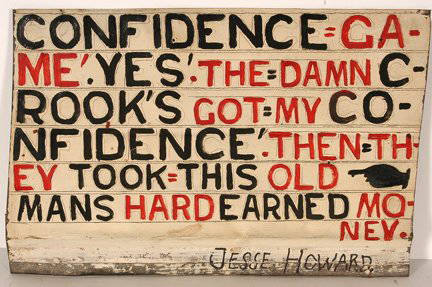 CONFIDENCE=GA-
ME'.YES'.THE=DAMN C-
ROOK'S GOT=MY CO-
NFIDENCE'.THEN=TH-
EY TOOK=THIS OLD
MANS HARD EARNED MO-
NEY.
JESSE HOWARD.